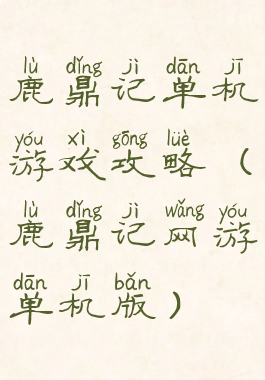 lù dǐng jì dān jī
鹿鼎记单机
yóu xì gōng lüè
游戏攻略（
lù dǐng jì wǎng yóu
鹿鼎记网游
dān jī bǎn
单机版）